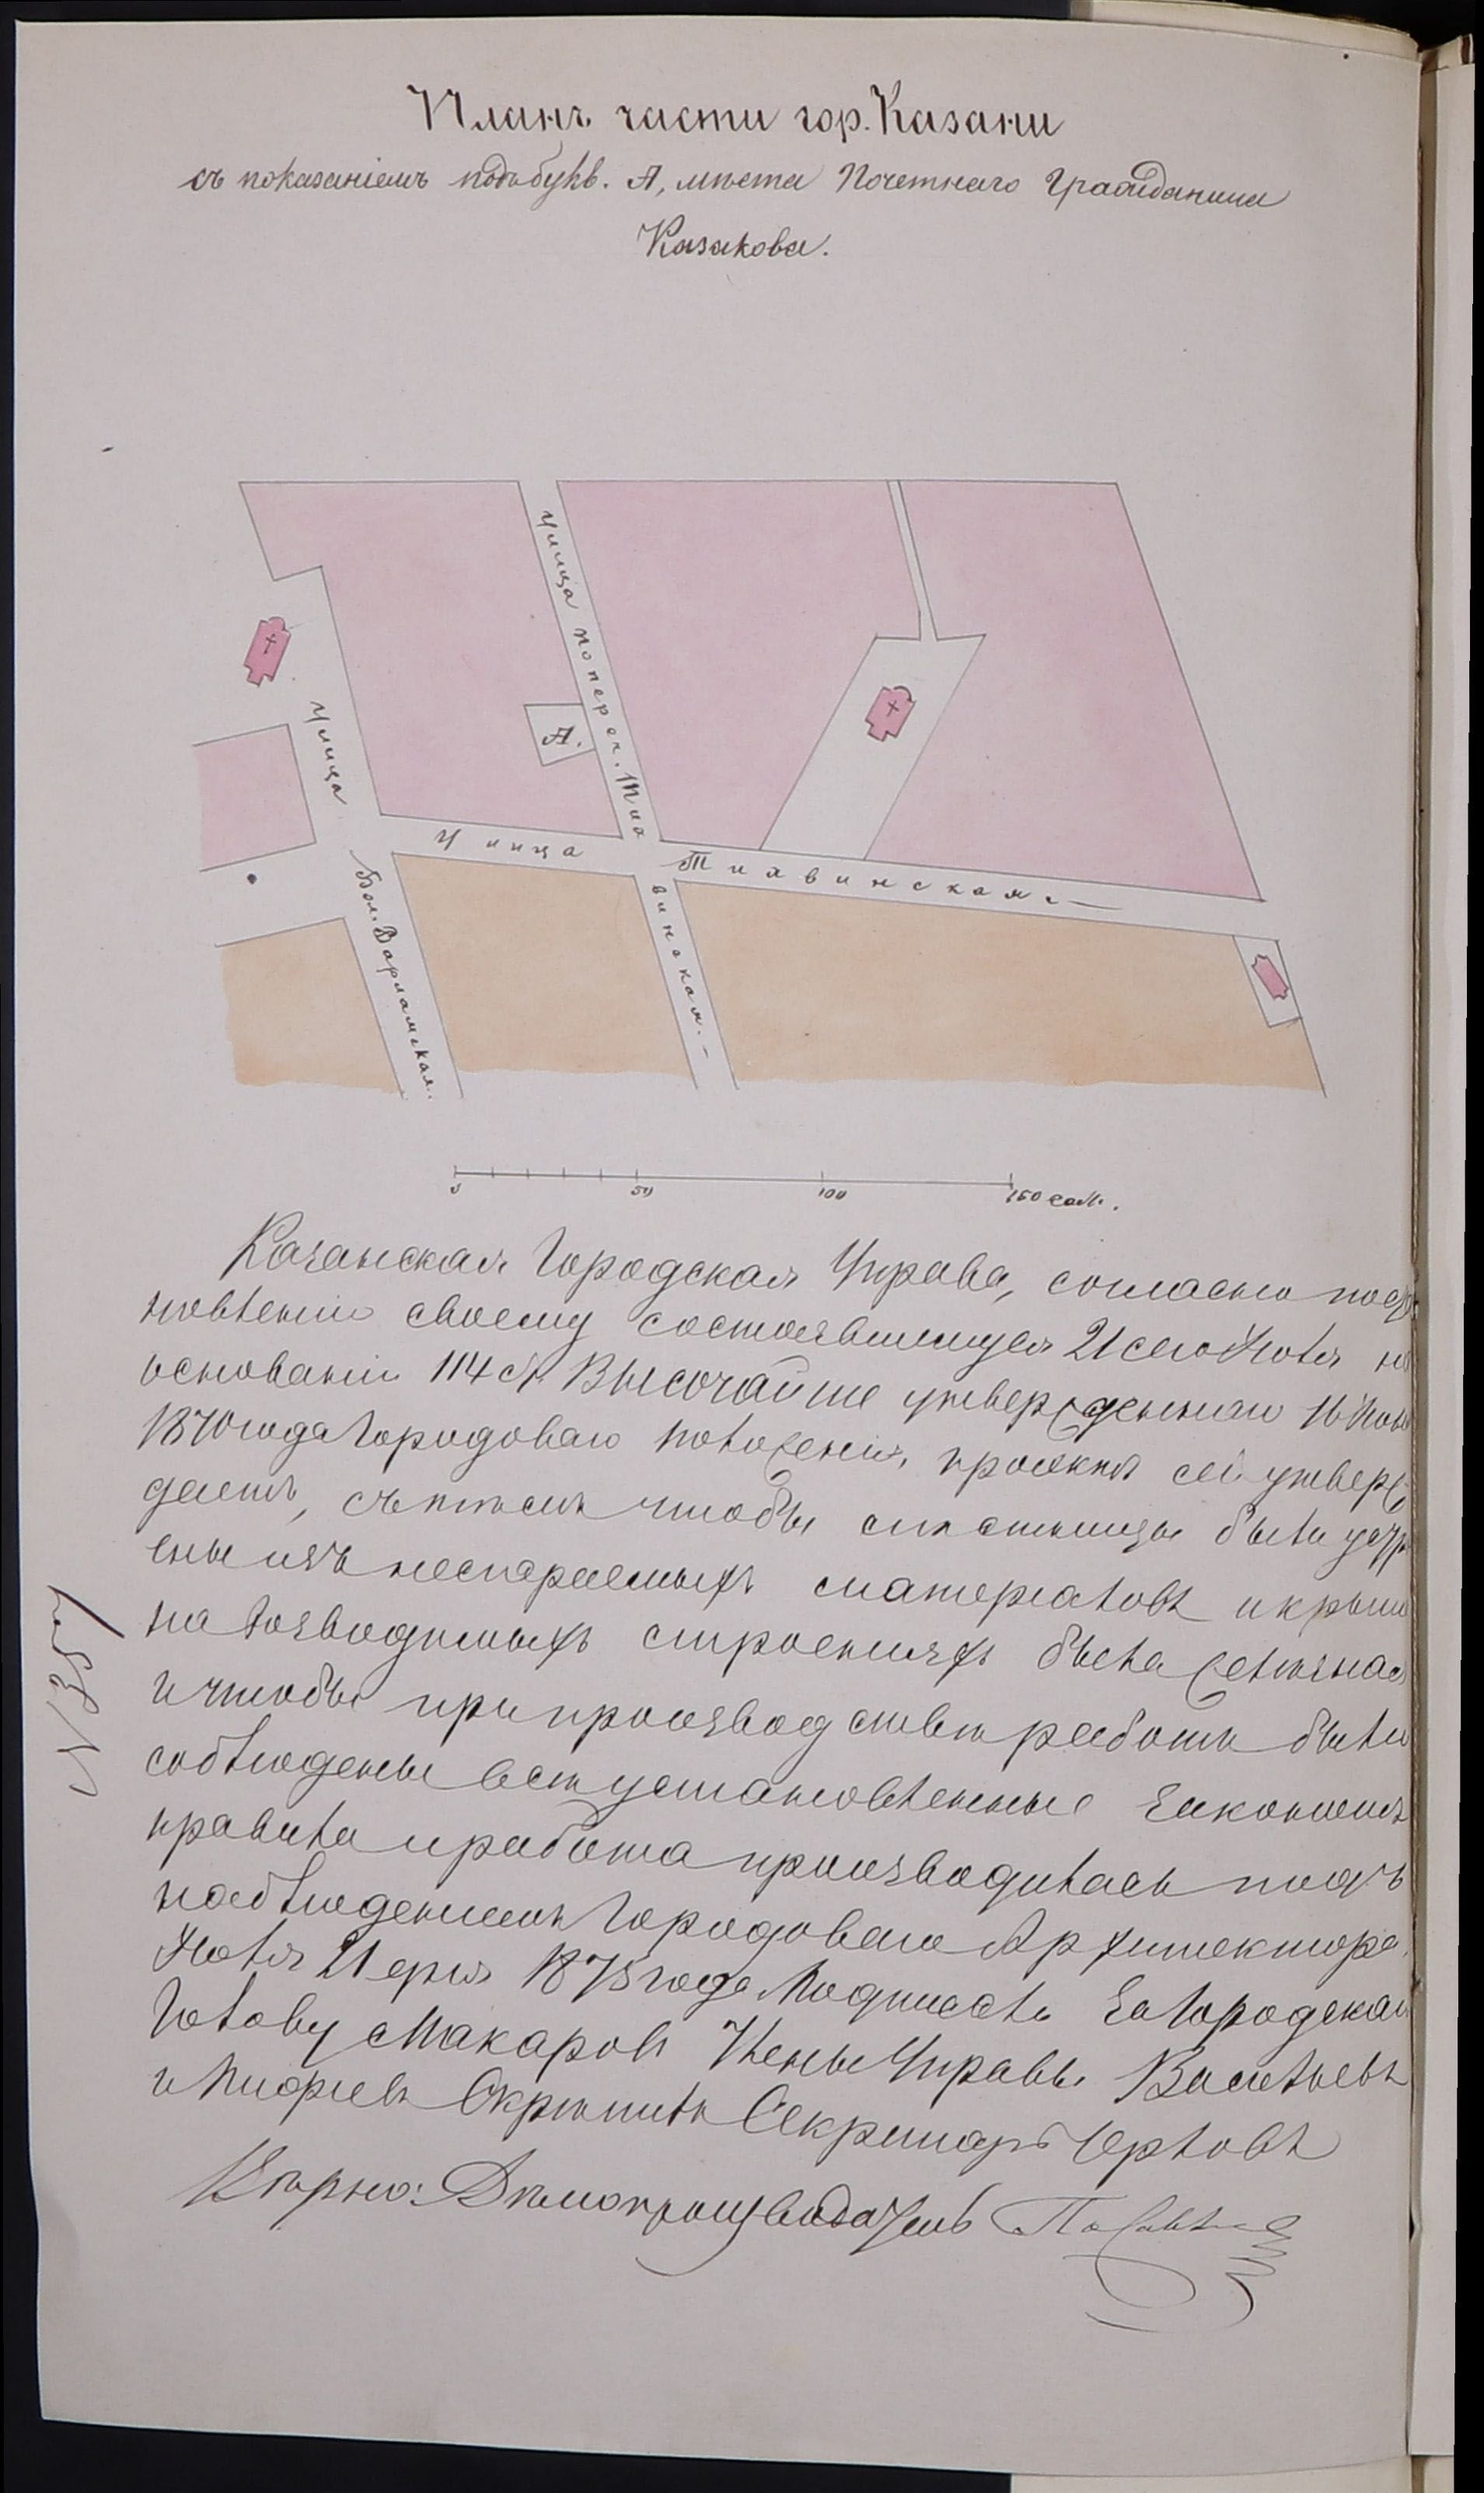 Планъ части гор. Казани
съ показаніемъ подъ букв. А, мѣста Почетнаго Гражданина
Казакова.
Улица попереч. Тиха
винская.
А.
Улица
Бол. Варламская.
Улица Тихвинская.
0 50 100 150 саж.
Казанская Городская Управа, согласно поста
новленію своему состоявшемуся 21 сего Іюля на
основаніи 114 ст. Высочайше утвержденнаго 16 Іюня
1870 года Городоваго Положенія, проэктъ сей утверж
даетъ, съ тѣмъ чтобы лѣстницы были устро
ены изъ несгараемыхъ матеріаловъ и крыша
на возводимыхъ строеніяхъ была желѣзная
и чтобы при производствѣ работъ были
соблюдены всѣ установленные закономъ
правила и работа производилась подъ
наблюденіемъ Городоваго Архитектора.
Іюля 21 дня 1875 года. Подписали: За Городскаго
Голову Макаровъ Члены Управы Васильевъ
и Скрѣпилъ Секретарь
Вѣрно: Дѣлопроизводитель
N 357